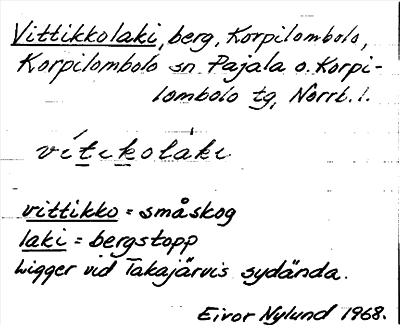 Vittikkolaki, berg, Korpilombolo,
Korpilombolo sn Pajala o. Korpi-
lombolo tg, Norrb. l.
vítikolàki
vittikko = småskog
laki = bergstopp
Ligger vid Takajärvis sydända.
Eivor Nylund 1968.